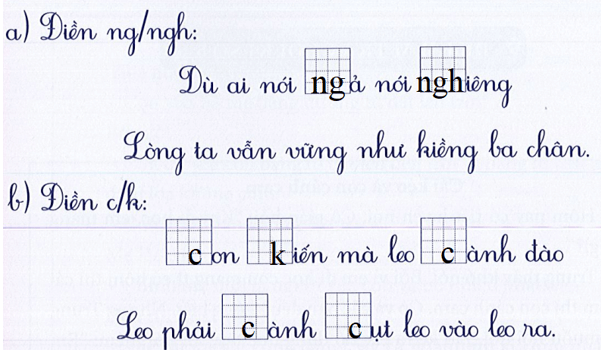 a) Điền ng/ngh:
Dù ai nói ngả nói nghiêng
Lòng ta vẫn vững như kiềng ba chân.
b) Điền c/k:
con kiến mà leo cành đào
Leo phải cành cụt leo vào leo ra.